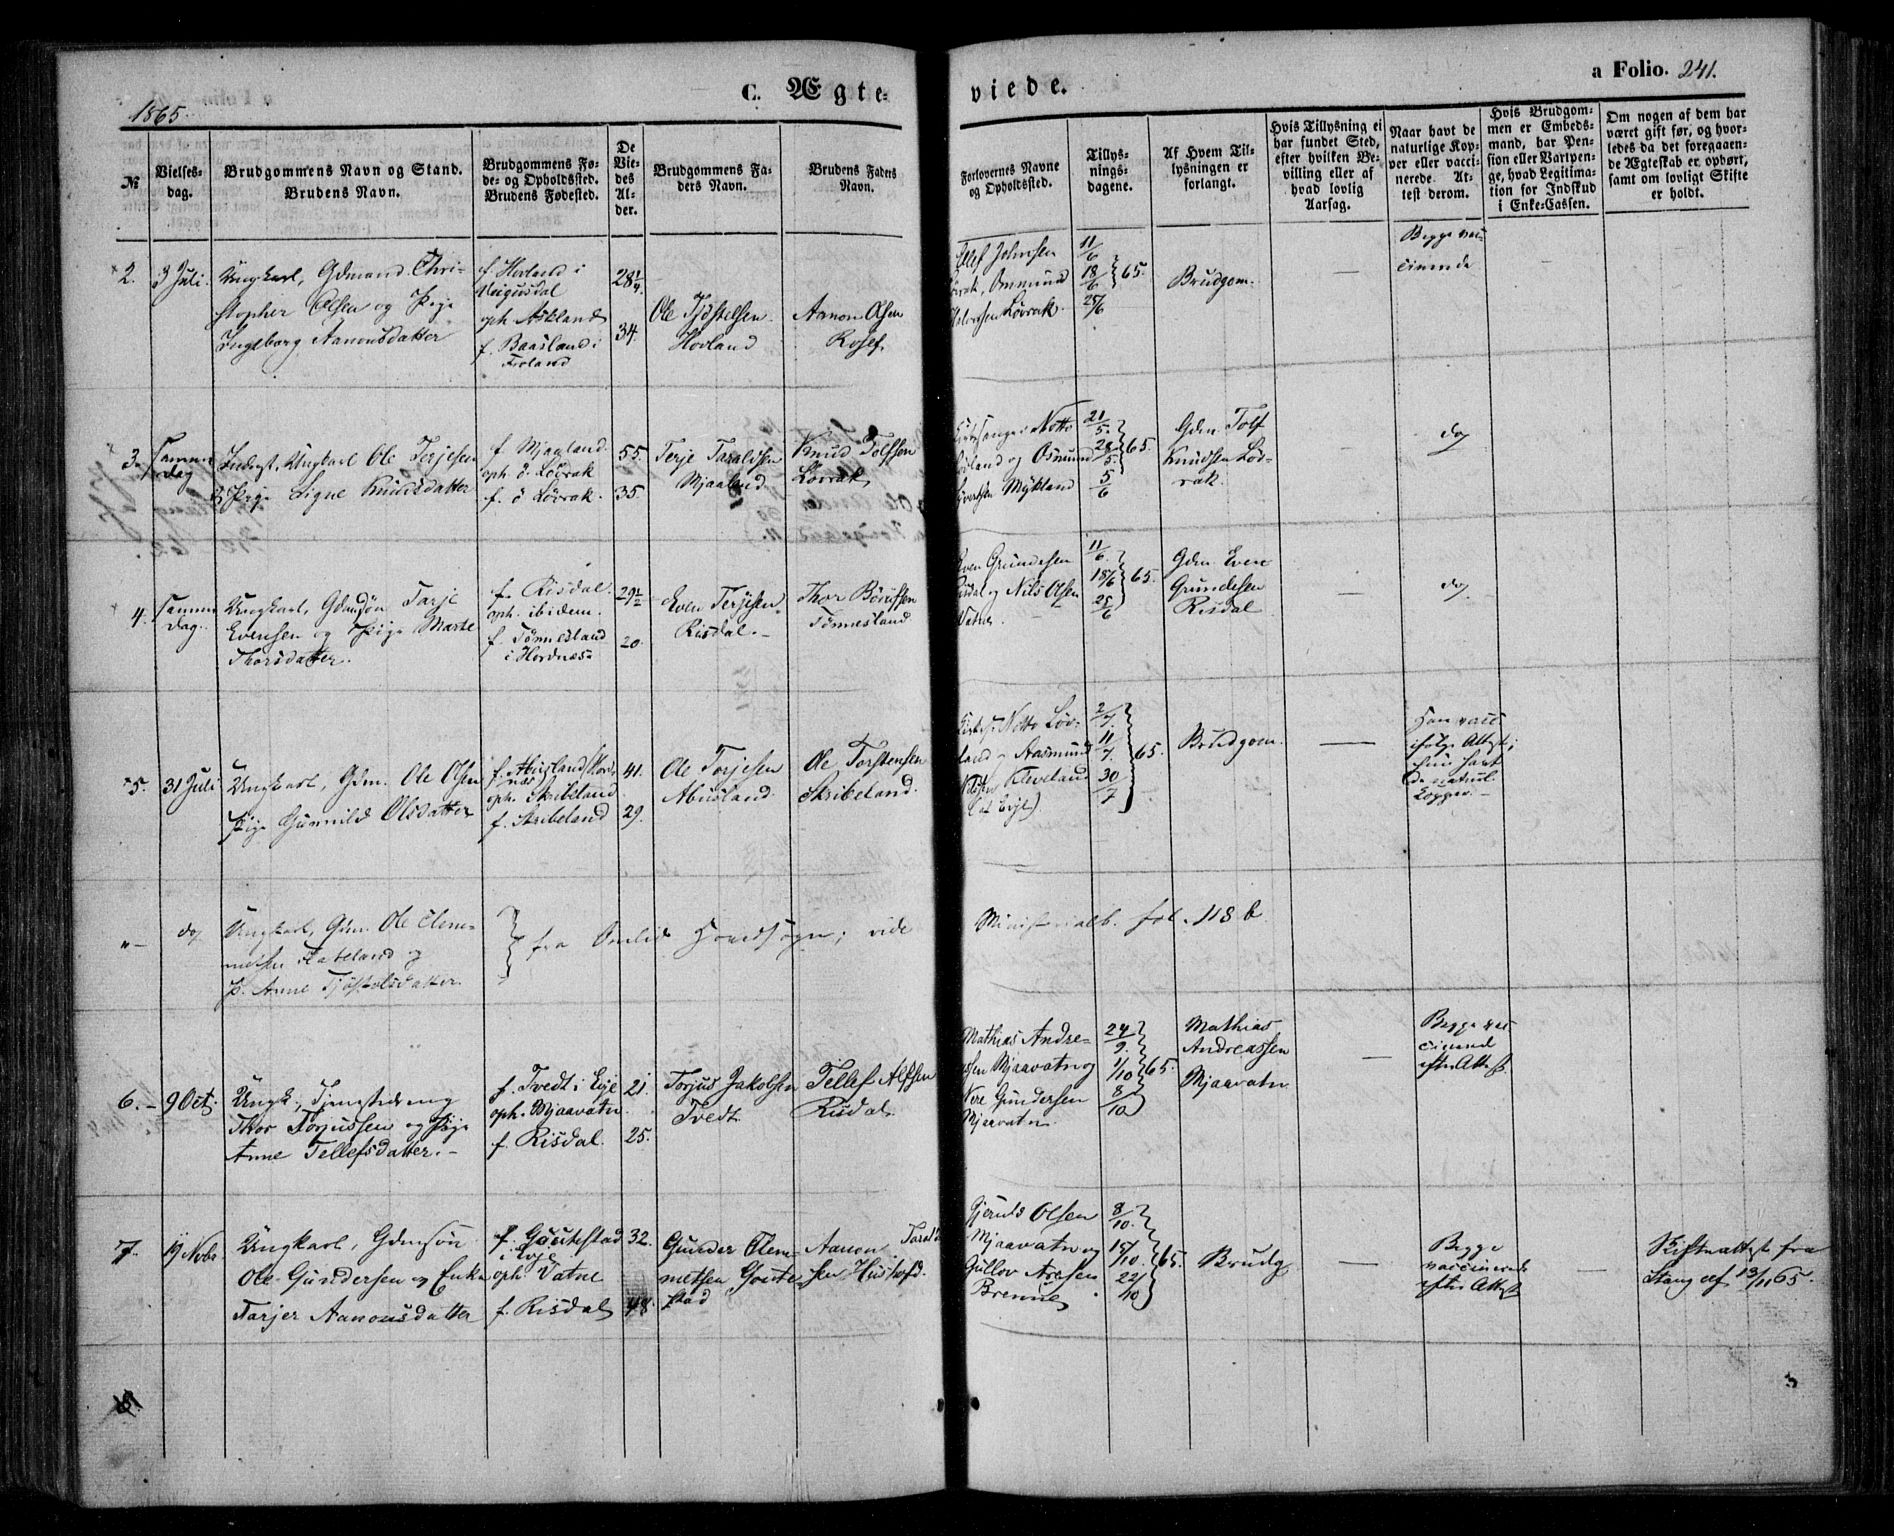 1865.
C. Ægte-
viede.
a Folio. 241.
№
Vielses-
dag.
Brudgommens Navn og Stand.
Brudens Navn.
Brudgommens Fø-
de- og Opholdssted.
Brudens Fødested.
De
Vie-
des
Al-
der.
Brudgommens Fa-
ders Navn.
Brudens Faders
Navn.
Forlovernes Navne
og Opholdssted.
Tillys-
nings-
dagene.
Af Hvem Til-
lysningen er
forlangt.
Hvis Tillysning ei
har fundet Sted,
efter hvilken Be-
villing eller af
hvad lovlig
Aarsag.
Naar havt de
naturlige Kop-
per eller vacci-
nerede. At-
test derom.
Hvis Brudgom-
men er Embeds-
mand, har Pen-
sion eller Vartpen-
ge, hvad Legitima-
tion for Indskud
i Enke-Cassen.
Om nogen af dem har
været gift før, og hvor-
ledes da det foregaaen-
de Ægteskab er ophørt,
samt om lovligt Skifte
er holdt.
2.
3 Juli.
Ungkarl, Gdmand. Chri-
stopher Olsen og Pige
Ingeborg Aanonsdatter
f. Hovland i
Veigusdal
oph. Askland
f. Baasland i
Froland
28 1/4
34.
Ole Tjöstelsen
Hovland
Aanon Olsen
Rosef
Ellef Johnsen
Lövrak, Ommund
Halvorsen Lövrak.
11/6
18/6
25/6
65.
Brudgom.
—
Begge vac-
cinerede
3.
Samme
dag
Inderst, Ungkarl Ole Terjesen
& Pige Signe Knudsdatter
f. Mjaaland.
oph. ö. Lövrak
f. ö Lövrak.
55.
35.
Terje Taraldsen
Mjaaland
Knud Tolfsen
Lövrak
Kirkesanger Notto
Lövland og Osmund
Syvertsen Mykland
21/5
28/5
5/6
65.
Gdm Tolf
Knudsen Löv-
rak.
—
do
4.
Samme
dag.
Ungkarl, Gdmdsön Tarje
Evensen og Pige Marte
Thorsdatter.
f. Risdal.
oph. ibidem.
f. Tönnesland
i Hordnæs
29 1/2
20.
Even Terjesen
Risdal. –
Thor Börufsen
Tönnesland
Even Grundesen
Risdal og Nils Olsen
Vatne.
11/6
18/6
25/6
65.
Gdm Even
Grundesen
Risdal
—
do
5.
31 Juli
Ungkarl, Gdm. Ole Olsen
Pige Gunnild Olsdatter
f. Abusland / Hord-
næs
oph. Skribeland
f. Skribeland
41.
29.
Ole Torjesen
Abusland
Ole Torstensen
Skribeland.
Kirkes. Notto Löv-
land og Aasmund
Nilsen Kleveland
(at Evje)
2/7
11/7
30/7
65.
Brudgom.
—
Han vacc
ifölge Attest;
hun havt
de naturl.
Kopper. –
„ –
do
Ungkarl, Gdm. Ole Clem-
metsen Flateland og
P. Anne Tjöstolsdatter.
fra Omlid Hovedsogn; vide
Ministerialb. fol. 118 b
6. –
9 Oct.
Ungk., Tjenestedreng
Thor Torjussen og Pige
Anne Tellefsdatter. –
f. Tvedt i Evje
oph. Mjaavatn
f. Risdal.
21.
25.
Torjus Jakobsen
Tvedt
Tellef Alfsen
Risdal
Mathias Andre-
assen Mjaavatn og
Nere Gundersen
Mjaavatn.
24/9
1/10
8/10
65.
Mathias
Andreassen
Mjaavatn
—
Begge vac
cinerede
efter Attest
7.
19 Novbr
Ungkarl, Gdmsön
Ole Gundersen og Enke
Tarjer Aanonsdatter
f. Goutestad
i Evje
oph. Vatne
f. Risdal
32.
48.
Gunder Clem-
metsen Goute-
stad
Aanon Tarald-
sen Hustofd.
Gjeruls Olsen
Mjaavatn og
Gullov Aresen
Brenne
8/10
15/10
22/10
65.
Brudg
—
Begge
vaccinerede
efter Attest
—
Skifteattest fra
Stang def 13/11 65.
8.